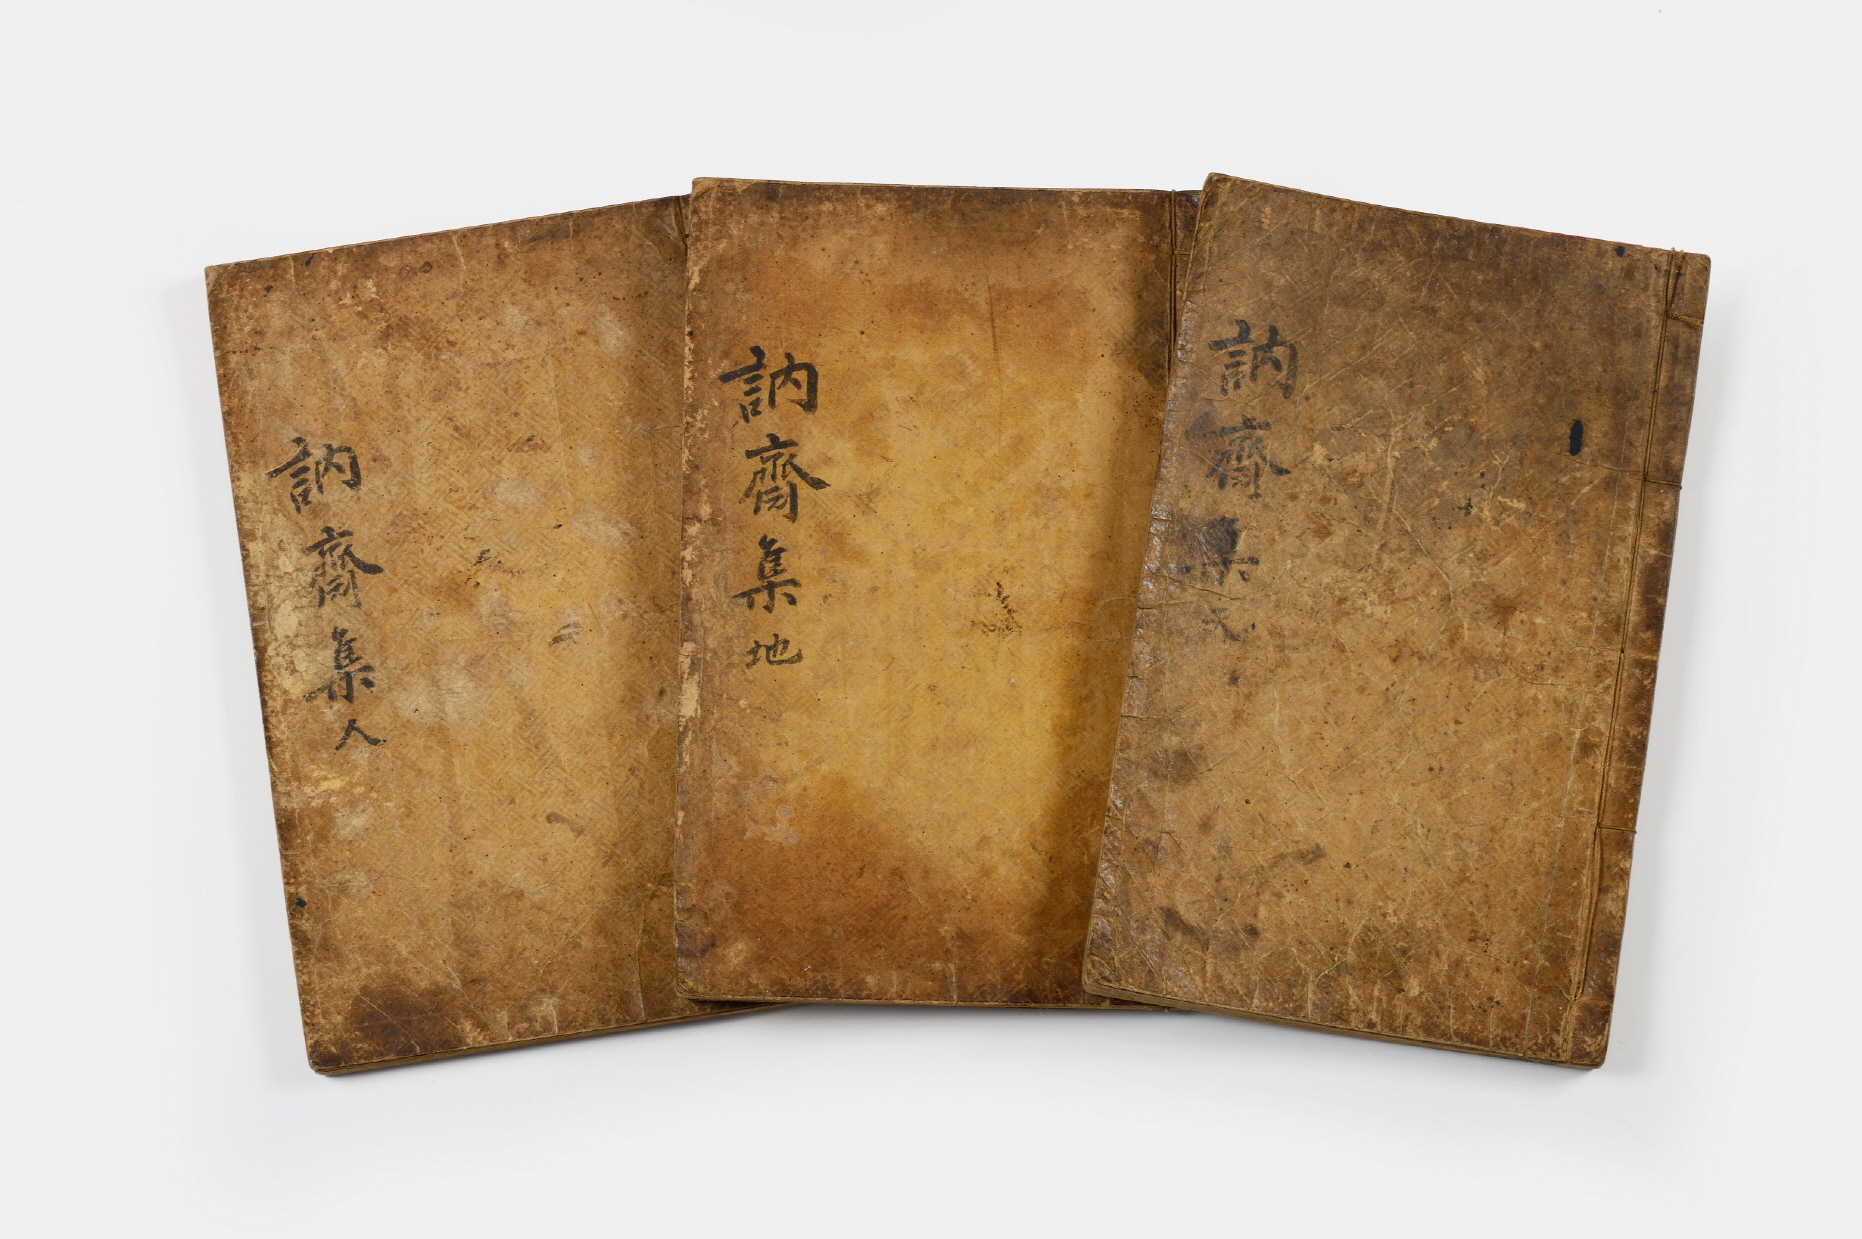 訥齋集天
訥齋集地
訥齋集人